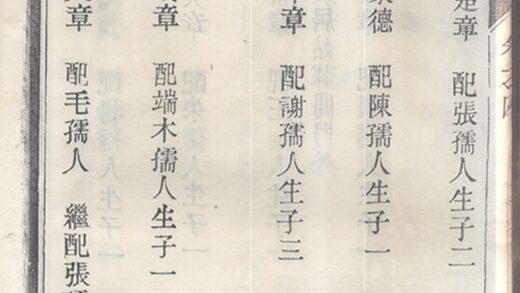 章 配張孺人生子二
德 配陳孺人生子一
章 配謝孺人生子三
章 配端木孺人生子一
章 配毛孺人 繼配張